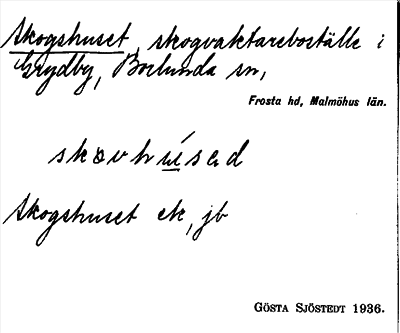 Skogshuset, skogvaktareboställe i
Grydby, Borlunda sn,
Frosta hd, Malmöhus län.
skovhúsad
Skogshuset ek, jb
GÖSTA SJÖSTEDT 1936.